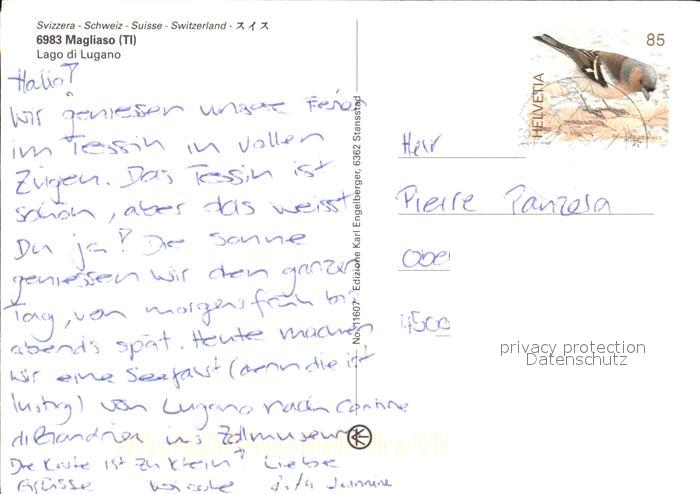 Svizzera - Schweiz - Suisse - Switzerland - スイス
6983 Magliaso (TI)
Lago di Lugano
Hallo!
Wir geniessen unsere Ferien
im Tessin in vollen
Zügen. Das Tessin ist
schön, aber das weisst
Du ja! Die Sonne
geniessen wir den ganzen
Tag, von morgens früh bis
abends spät. Heute machen
wir eine Seefahrt (denn die ist
lustig) von Lugano nach Cantine
di Gandria ins Zollmuseum.
Die Karte ist zu klein! Liebe
Grüsse
No. 11607 Edizione Karl Engelberger, 6362 Stansstad
HELVETIA
85
Herr
Pierre
Ober
4500
privacy protection
Datenschutz